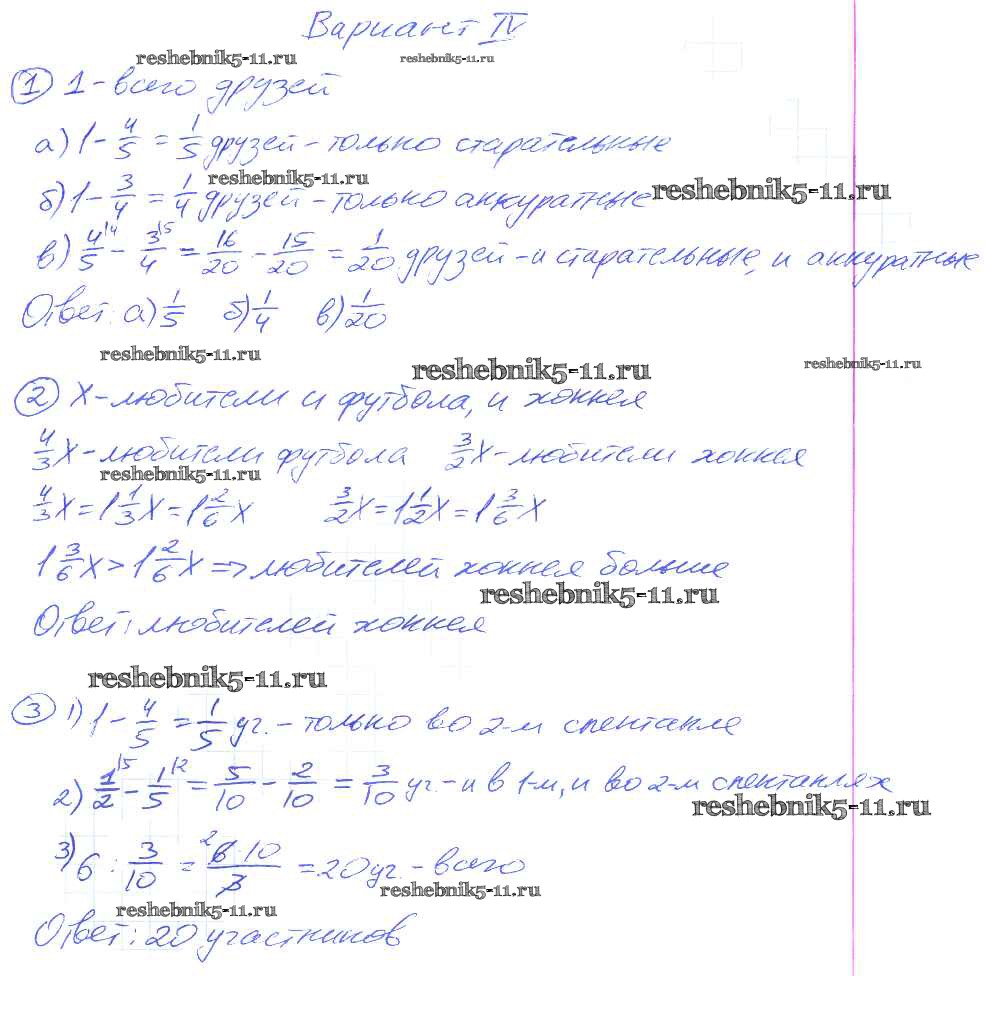 Вариант IV
reshebnik5-11.ru reshebnik5-11.ru
① 1 - всего друзей
а) 1 - 4/5 = 1/5 друзей - только старательные
reshebnik5-11.ru reshebnik5-11.ru
б) 1 - 3/4 = 1/4 друзей - только аккуратные
в) 4/5 |4 - 3/4 |5 = 16/20 - 15/20 = 1/20 друзей - и старательные, и аккуратные
Ответ: а) 1/5 б) 1/4 в) 1/20
reshebnik5-11.ru reshebnik5-11.ru reshebnik5-11.ru
② X - любители и футбола, и хоккея
4/3 X - любители футбола 3/2 X - любители хоккея
reshebnik5-11.ru
4/3 X = 1 1/3 X = 1 2/6 X 3/2 X = 1 1/2 X = 1 3/6 X
1 3/6 X > 1 2/6 X => любителей хоккея больше
reshebnik5-11.ru
Ответ: любителей хоккея
reshebnik5-11.ru
③ 1) 1 - 4/5 = 1/5 уч. - только во 2-м спектакле
2) 1/2 |5 - 1/5 |2 = 5/10 - 2/10 = 3/10 уч. - и в 1-м, и во 2-м спектаклях
reshebnik5-11.ru
3) 6 : 3/10 = 2 6·10/3 = 20 уч. - всего
reshebnik5-11.ru
reshebnik5-11.ru
Ответ: 20 участников